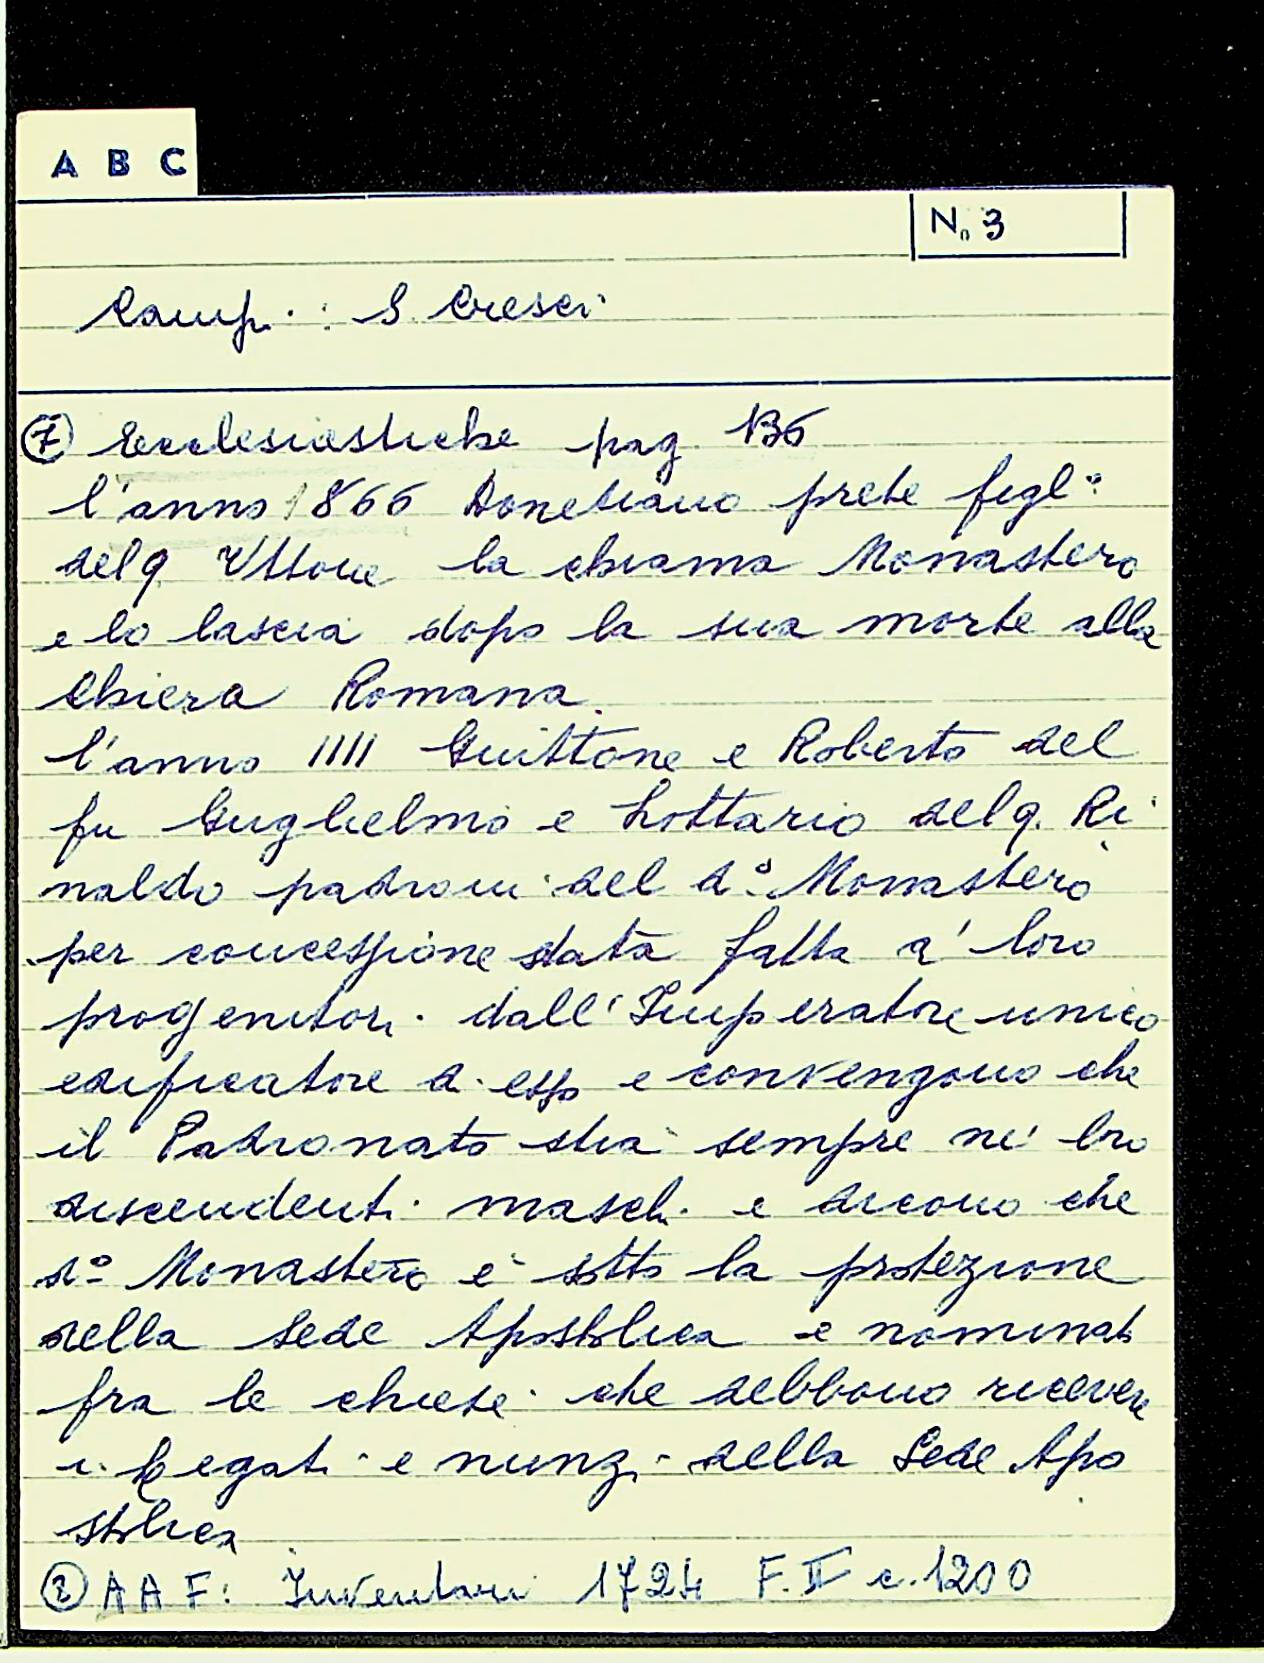 A B C
N. 3
Camp. : S. Cresci
⑦ Ecclesiastiche pag. 136
l'anno 1866 Donetiano prete figl°:
del q. Vttore la chiama Monastero
e lo lascia dopo la sua morte alla
Chiera Romana.
l'anno 1111 Guittone e Roberto del
fu Guglielmo e Lottario del q. Ri
naldo padroni del d.° Monastero
per concessione stata fatta a' loro
progenitori dall'Imperatore unico
edificatore di esso e convengono che
il Padronato stia sempre ne' loro
discendenti maschi e dicono che
d.° Monastero è sotto la protezione
della Sede Apostolica e nominati
fra le chiese che debbono ricevere
i Legati e nunzi della Sede Apo
stolica
② A A F: Inventari 1724 F. II c. 1200